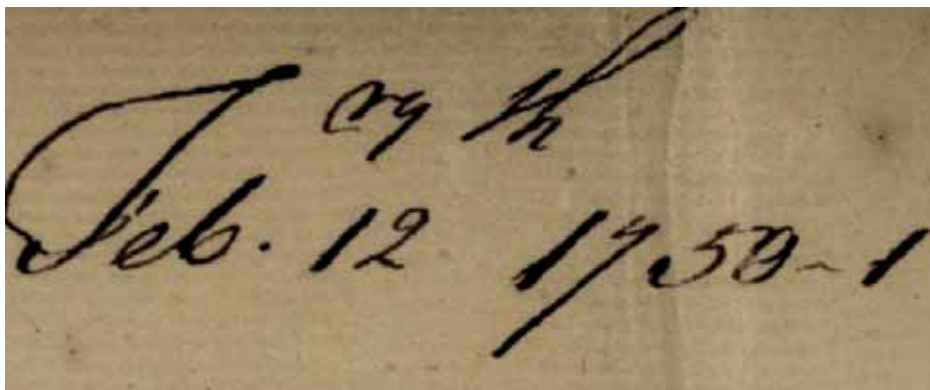 Feb.ry 12th 1750-1